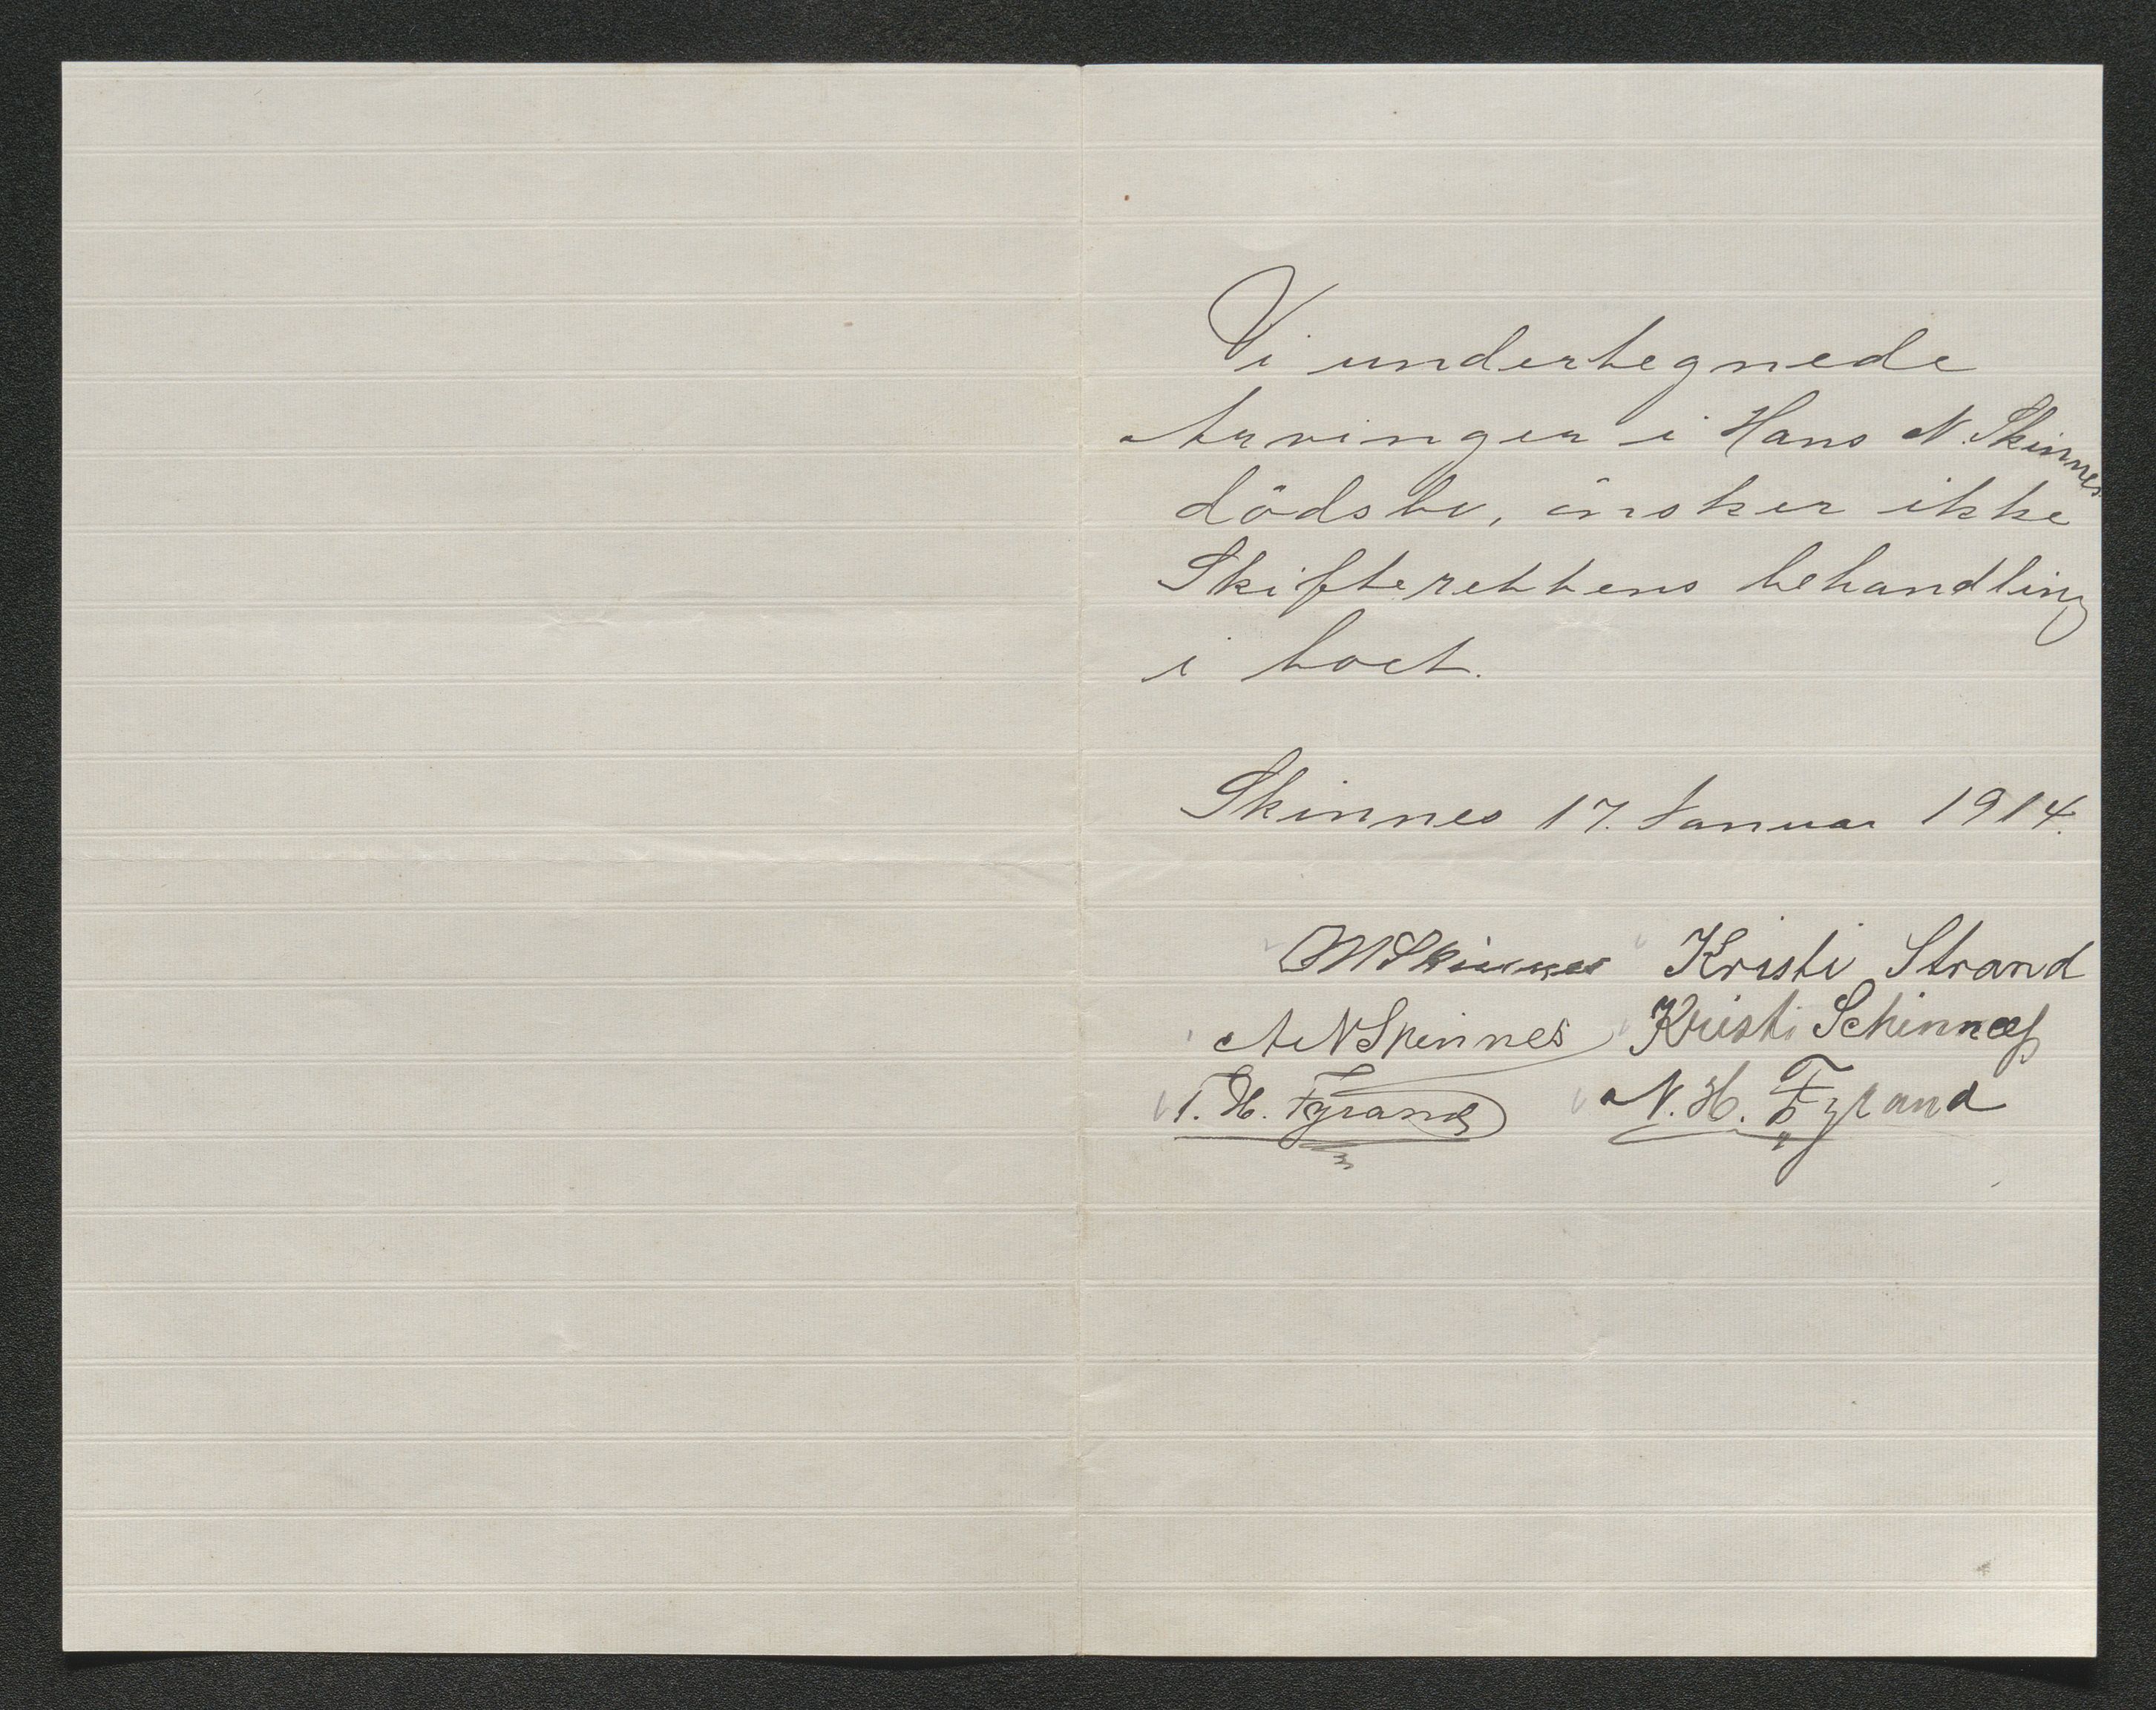 Vi undertegnede
Arvinger i Hans N. Skinnes
dödsbo, önsker ikke
Skifterettens behandling
i boet.
Skinnes 17. Januar 1914.
Skinnes Kristi Strand
A N Skinnes Kristi Schinnæss
T. H. Fyrand N. H. Fyrand